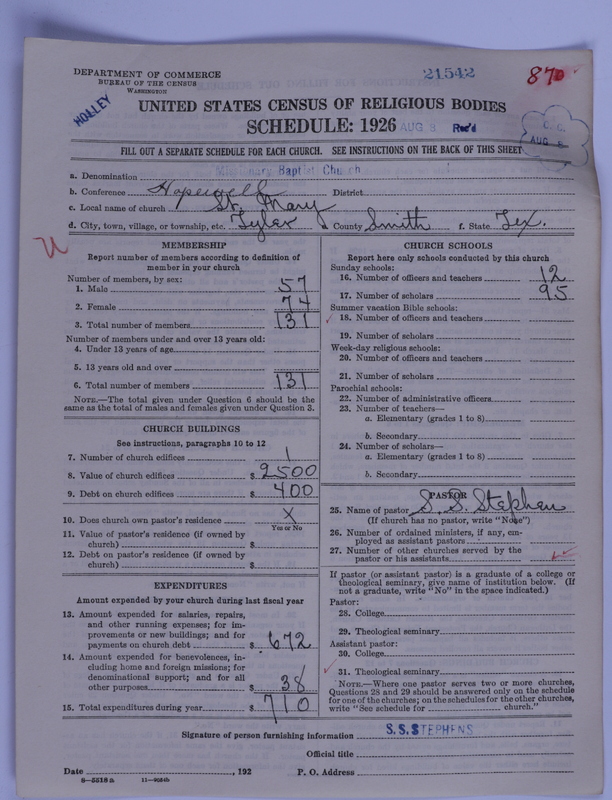 DEPARTMENT OF COMMERCE
BUREAU OF THE CENSUS
WASHINGTON
21542
870
HOLLEY
UNITED STATES CENSUS OF RELIGIOUS BODIES
SCHEDULE: 1926 AUG 8 Rec'd
AUG 8
FILL OUT A SEPARATE SCHEDULE FOR EACH CHURCH. SEE INSTRUCTIONS ON THE BACK OF THIS SHEET
a. Denomination Missionary Baptist Church
b. Conference Hopewell District
c. Local name of church St. Mary
d. City, town, village, or township, etc. Tyler County Smith f. State Tex.
MEMBERSHIP
Report number of members according to definition of
member in your church
Number of members, by sex:
1. Male 57
2. Female 74
3. Total number of members 131
Number of members under and over 13 years old:
4. Under 13 years of age
5. 13 years old and over
6. Total number of members 131
NOTE.—The total given under Question 6 should be the
same as the total of males and females given under Question 3.
CHURCH BUILDINGS
See instructions, paragraphs 10 to 12
7. Number of church edifices 1
8. Value of church edifices $ 2500
9. Debt on church edifices $ 400
10. Does church own pastor's residence X
Yes or No
11. Value of pastor's residence (if owned by
church) $
12. Debt on pastor's residence (if owned by
church) $
EXPENDITURES
Amount expended by your church during last fiscal year
13. Amount expended for salaries, repairs,
and other running expenses; for im-
provements or new buildings; and for
payments on church debt $ 672
14. Amount expended for benevolences, in-
cluding home and foreign missions; for
denominational support; and for all
other purposes $ 38
15. Total expenditures during year $ 710
CHURCH SCHOOLS
Report here only schools conducted by this church
Sunday schools:
16. Number of officers and teachers 12
17. Number of scholars 95
Summer vacation Bible schools:
18. Number of officers and teachers
19. Number of scholars
Week-day religious schools:
20. Number of officers and teachers
21. Number of scholars
Parochial schools:
22. Number of administrative officers
23. Number of teachers—
a. Elementary (grades 1 to 8)
b. Secondary
24. Number of scholars—
a. Elementary (grades 1 to 8)
b. Secondary
PASTOR
25. Name of pastor S. S. Stephen
(If church has no pastor, write "None")
26. Number of ordained ministers, if any, em-
ployed as assistant pastors
27. Number of other churches served by the
pastor or his assistants
If pastor (or assistant pastor) is a graduate of a college or
theological seminary, give name of institution below. (If
not a graduate, write "No" in the space indicated.)
Pastor:
28. College
29. Theological seminary
Assistant pastor:
30. College
31. Theological seminary
NOTE.—Where one pastor serves two or more churches,
Questions 28 and 29 should be answered only on the schedule
for one of the churches; on the schedules for the other churches,
write "See schedule for church."
Signature of person furnishing information S.S.STEPHENS
Official title
Date , 192 P. O. Address
8—5518 b 11—9024b